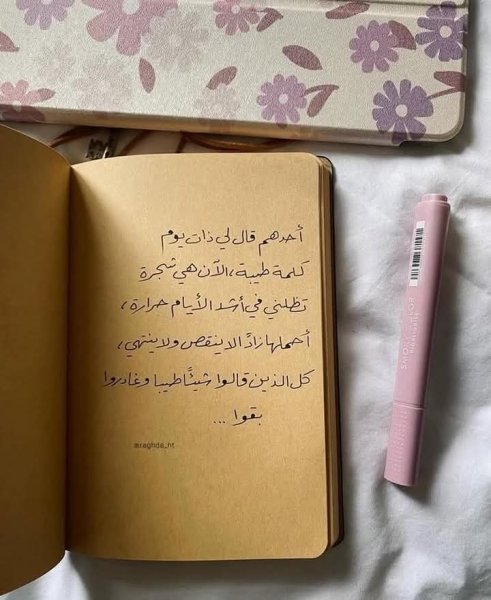 أحدهم قال لي ذات يوم
كلمة طيبة، الآن هي شجرة
تظلني في أشد الأيام حرارة،
أحملها زادًا لا ينقص ولا ينتهي،
كل الذين قالوا شيئًا طيبا وغادروا
بقوا ...
@raghda_nt